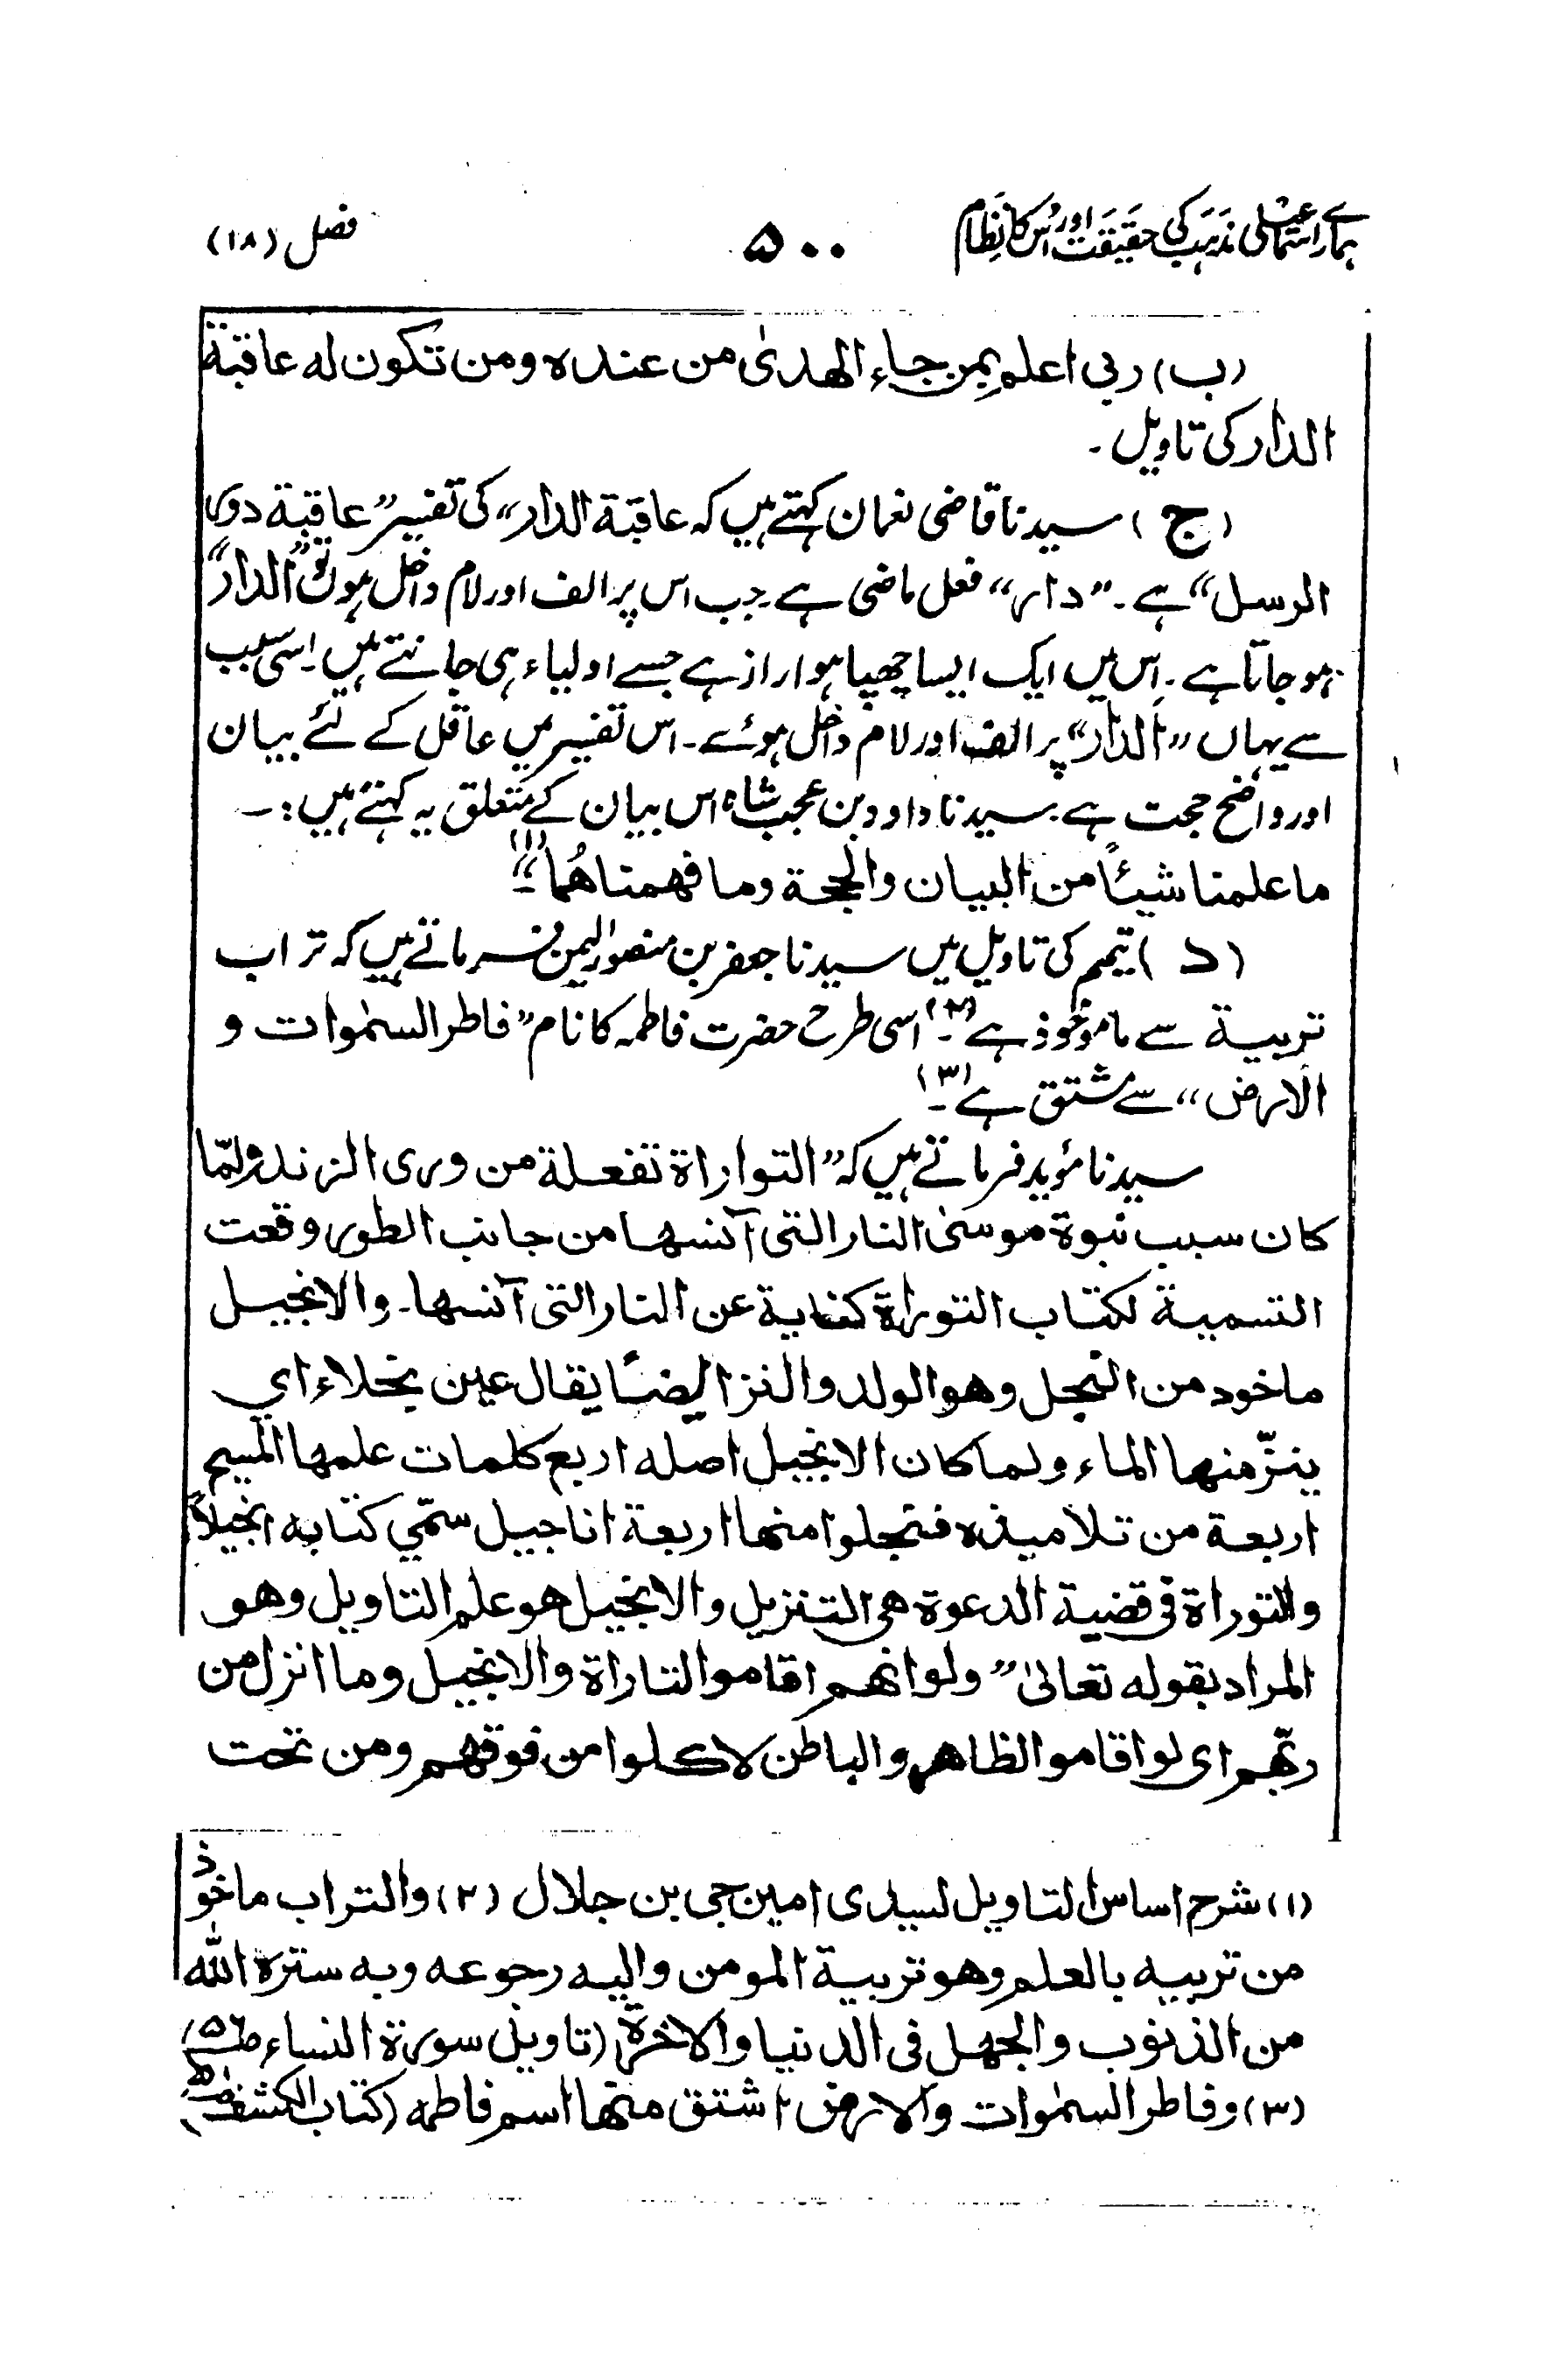 ہمارے اسماعیلی مذہب کی حقیقت اور اُس کا نظام
۵۰۰
فصل (۱۸)
(ب) ربی اعلم بمن جاء الھدیٰ من عندہ ومن تکون لہ عاقبۃ
الدار کی تاویل ۔
(ج) سیدنا قاضی نعمان کہتے ہیں کہ عاقبۃ الدار“ کی تفسیر ”عاقبۃ دور
الرسل“ ہے ۔ ”دار“ فعل ماضی ہے ۔ جب اس پر الف اور لام داخل ہوں تو ”الدار“
ہو جاتا ہے ۔ اِس میں ایک ایسا چھپا ہوا راز ہے جسے اولیاء ہی جانتے ہیں ۔ اسی سبب
سے یہاں ”الدار“ پر الف اور لام داخل ہوئے ۔ اس تفسیر میں عاقل کے لئے بیان
اور واضح حجت ہے ۔ سیدنا داود بن عجب شاہ اس بیان کے متعلق یہ کہتے ہیں :۔
ما علمنا شیئاً من البیان والحجۃ وما فھمناھُما“ ۔(۱)
(د) تیمم کی تاویل میں سیدنا جعفر بن منصور الیمن فرماتے ہیں کہ تراب
تربیۃ سے ماموخوذ ہے ۔(۲) اسی طرح حضرت فاطمہ کا نام ”فاطر السمٰوات و
الارض“ سے مشتق ہے ۔(۳)
سیدنا مؤید فرماتے ہیں کہ ”التواراۃ تفعلۃ من وری الزند ولمّا
کان سبب نبوۃ موسیٰ النار التی آنسھا من جانب الطور وقعت
التسمیۃ لکتاب التوراۃ کنایۃ عن النار التی آنسھا ۔ والانجیل
ماخود من النجل وھو الولد والنز ایضًا یقال عین نجلاء ای
ینزّ منھا الماء ولما کان الانجیل اصلہ اربع کلمات علمھا المسیح
اربعۃ من تلامیذہ فنجلوا منھا اربعۃ اناجیل سمّی کتابہ انجیلاً
والتوراۃ فی قضیۃ الدعوۃ ھی التنزیل والانجیل ھو علم التاویل وھو
المراد بقولہ تعالیٰ ”ولو انھم اقاموا التاراۃ والانجیل وما انزل من
ربّھم ای لو اقاموا الظاھر والباطن لاکلوا من فوقھم ومن تحت
(۱) شرح اساس التاویل لسیدی امین جی بن جلال (۲) والتراب ماخوذ
من تربیہ بالعلم وھو تربیۃ المومن والیہ رجوعہ وبہ سترہ اللہ
من الذنوب والجھل فی الدنیا والاخرۃ (تاویل سورۃ النساء ص۵۶)
(۳) وفاطر السمٰوات والارض اشتق منھا اسم فاطمہ (کتاب الکشف